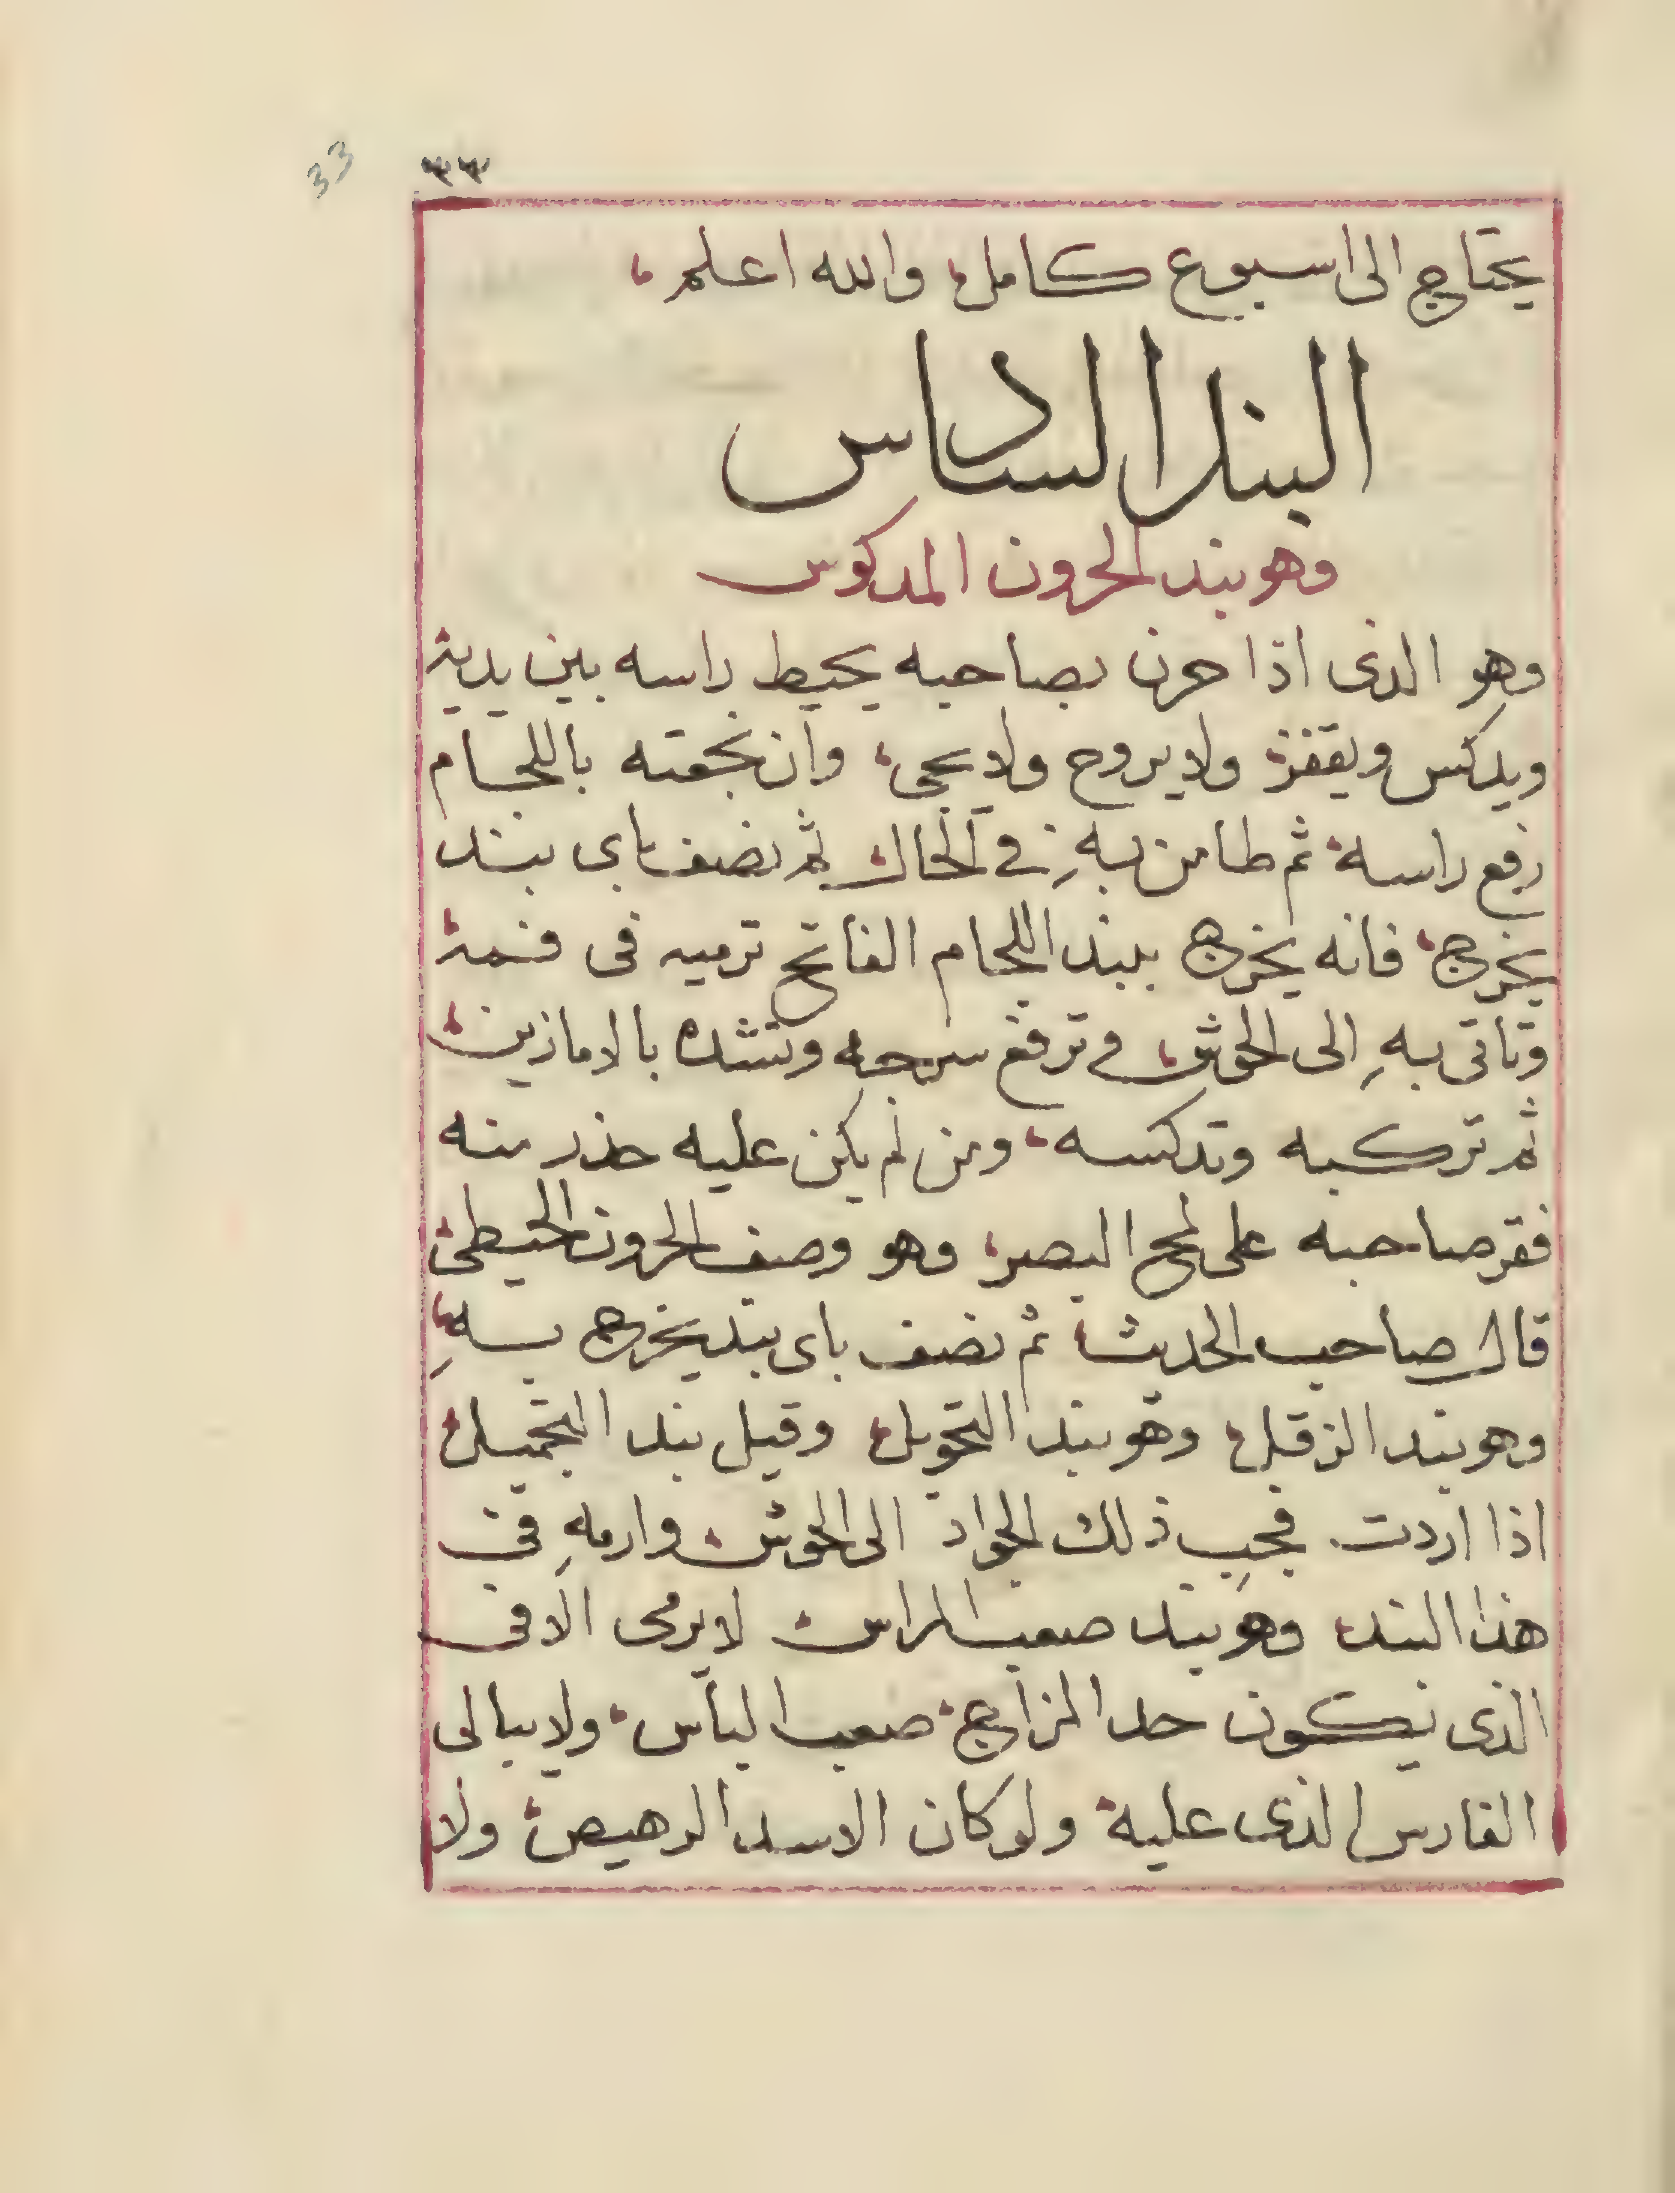 33
٣٣
يحتاج الى اسبوع كامل، والله اعلم،
البند السادس
وهو بند الحرون المدكوس
وهو الذى اذا حرن بصاحبه يحيط راسه بين يديه
ويدكس ويقفز ولا يروح ولا يجى، وان نجعته باللجام
رفع راسه ثم طا من به في الحال ثم نصف باى بند
يخرج، فانه يخرج ببند اللجام الفاتح ترميه فى فمه
وتاتى به الى الحوش، وترفع سرجه وتشده بالامازين
ثم تركبه وتدكسه، ومن لم يكن عليه حذر منه
فقر صاحبه على لمح البصر، وهو وصف الحرون الحيطى
قال صاحب الحديث، ثم نصف باى بند يخرج به،
وهو بند الزقل، وهو بند التحويل، وقيل بند التجميل،
اذا اردت فجب ذلك الجواد الى الحوش، وارمه فى
هذا البند، وهو بند صعب المراس، لا يرمى الا فى
الذى يكون حد المزاج، صعب الباس، ولا يبالى
الفارس الذى عليه، ولو كان الاسد الرهيص، ولا